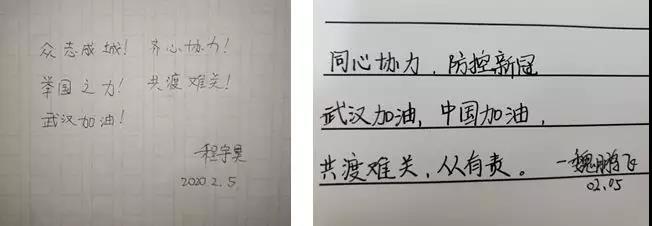 众志成城！ 齐心协力！
举国之力！ 共渡难关！
武汉加油！
程宇昊
2020.2.5
同心协力，防控新冠
武汉加油，中国加油，
共渡难关，从有责。 一魏鹏飞
02.05